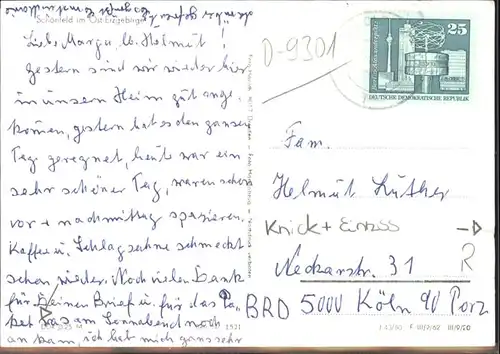 Schönfeld im Ost-Erzgebirge
Liebe Marga u. Helmut!
gestern sind wir wieder hier
in unsern Heim gut ange-
kommen, gestern hat es den ganzen
Tag geregnet, heut war ein
sehr schöner Tag, waren schon
vor + nachmittag spazieren.
Kaffee u. Schlagsahne schmeckt
schon wieder. Noch vielen Dank
für Deinen Brief u. für das Pa-
ket was am Sonnabend noch
an kam, ich hab mich ganz sehr
D-9301
25
DEUTSCHE DEMOKRATISCHE REPUBLIK
Fam.
Helmut Luther
Knick + Einriss
Neckarstr. 31
R
BRD 5000 Köln 90 Porz
1521